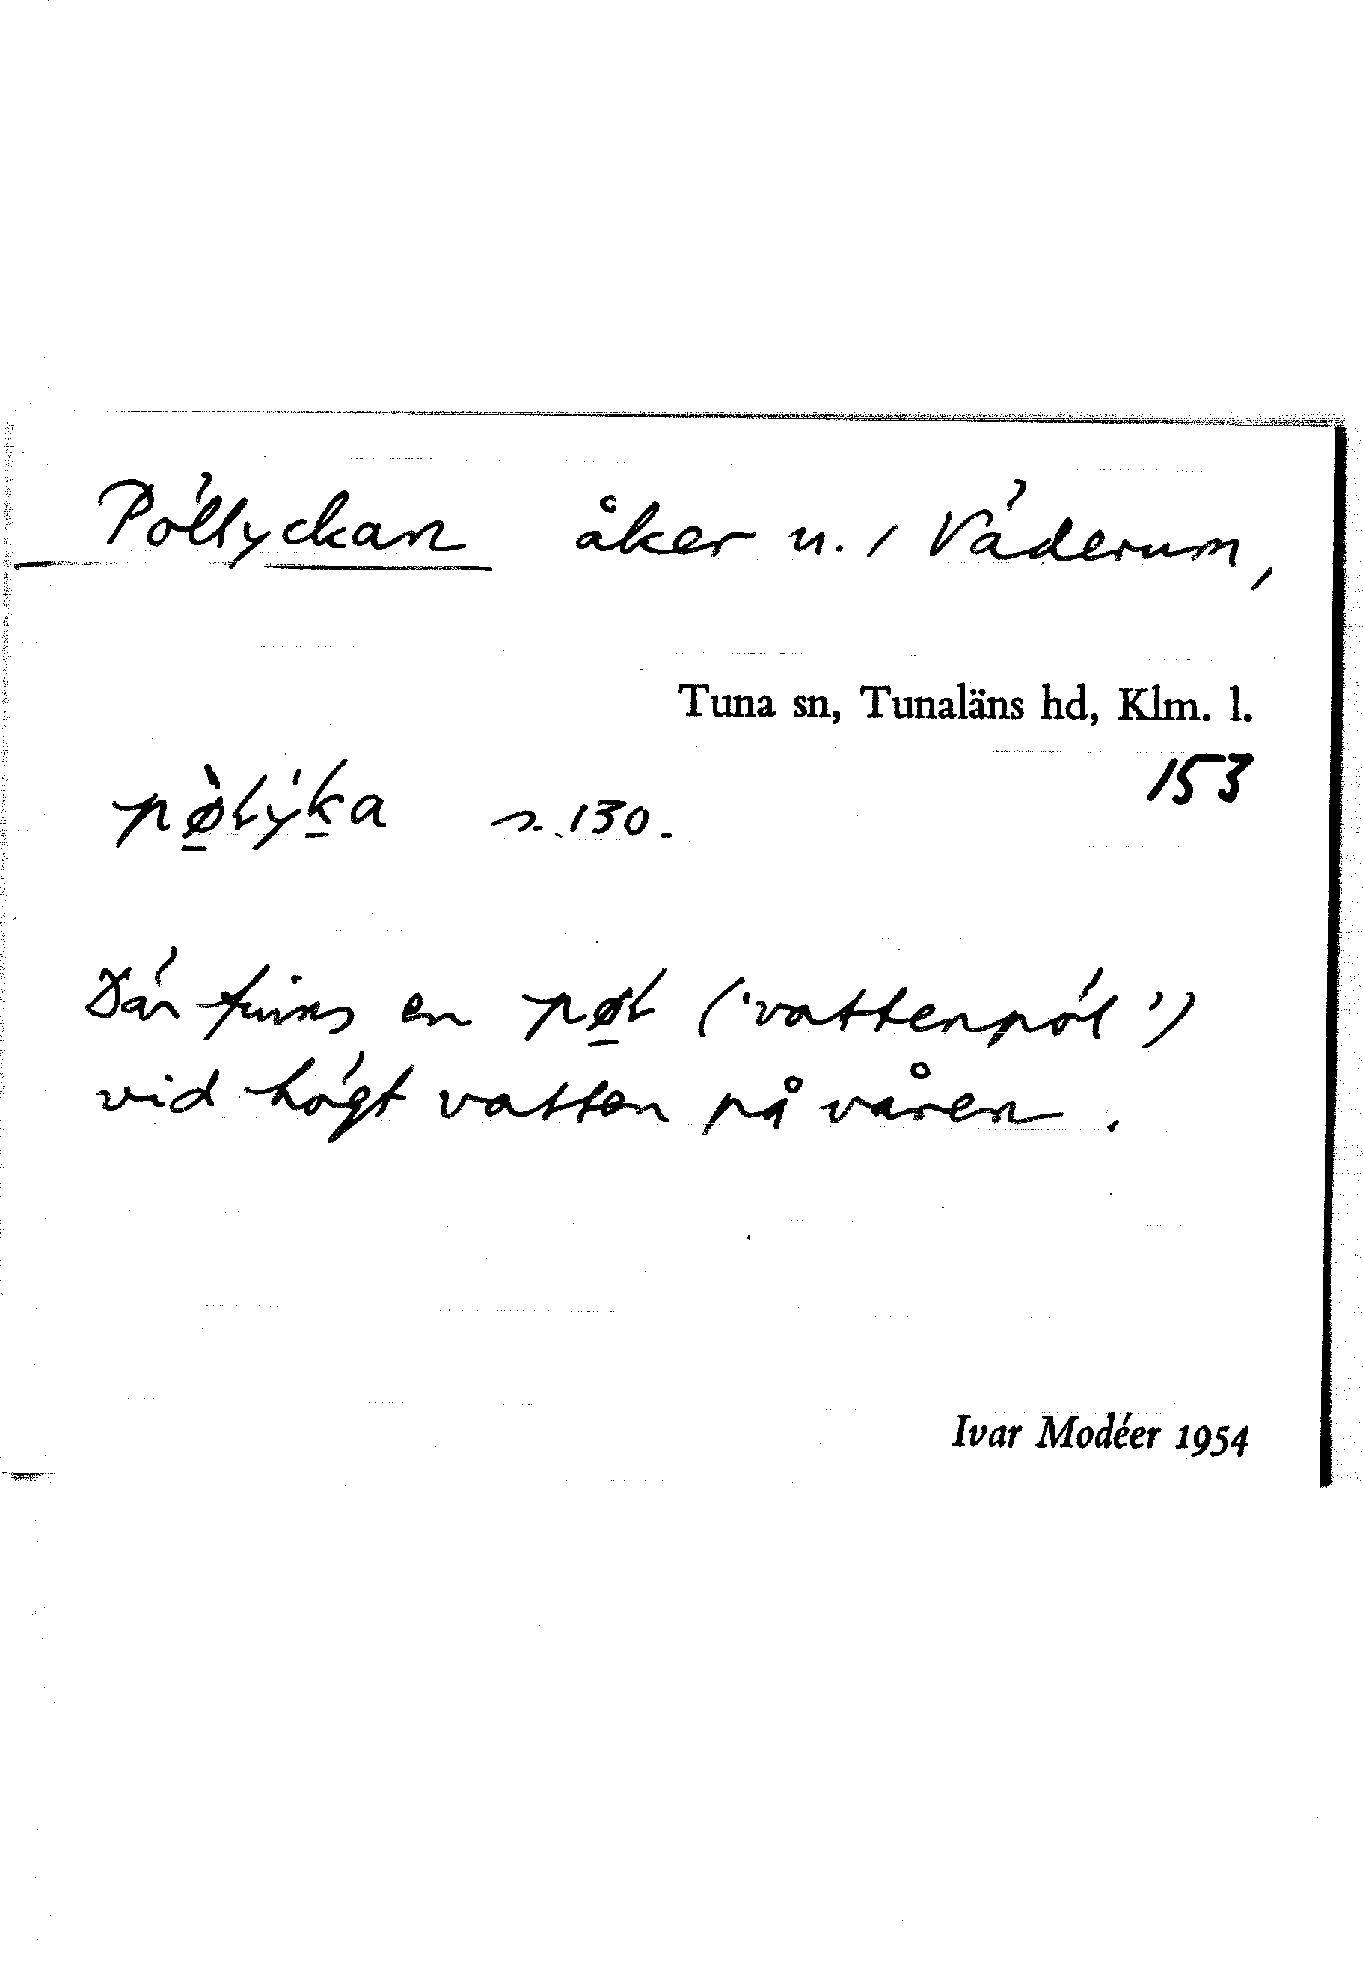 Pöllyckan åker u. 1 Väderum,
Tuna sn, Tunaläns hd, Klm. l.
153
pø̱̀lýḵa s. 130.
Där finns en pø̱l ('vattenpöl')
vid högt vatten på våren.
Ivar Modéer 1954